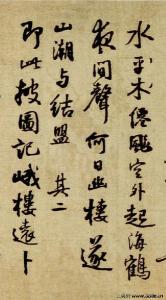 水平木僊飈空外起海鶴
夜間聲何日幽棲遂
山湖与結盟 其二
即此披圖記峨樓遠卜